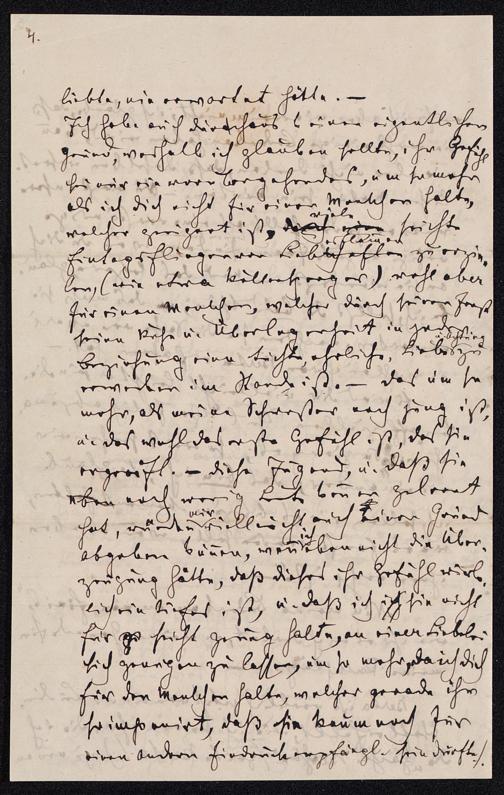 4.
liebte, nie erwartet hätte. —
Ich habe auch durchaus keinen eigentlichen
Grund, weshalb ich glauben sollte, ihr Gefühl
sei nur ein vorübergehendes, um so mehr
als ich dich nicht für einen Menschen halte,
welcher geeignet ist, viele seichte
Eintagsfliegen Liebschaften zu erzie-
len, (wie etwa ) wohl aber
für einen Menschen, welcher durch seinen Ernst
seine Ruhe u. Überlegenheit in jeder
Beziehung eine tiefe, ehrliche, Liebe zu
erwerben im Stande ist. — Das um so
mehr, als meine Schwester noch jung ist,
u. das wohl das erste Gefühl ist, das sie
ergreift. — diese Jugend, u. daß sie
eben noch wenig Leute kennen gelernt
hat, würden mir vielleicht auch einen Grund
abgeben können, wenn ich eben nicht die Über-
zeugung hätte, daß dieses ihr Gefühl wirk-
lich ein tiefes ist, u. daß ich sie nicht
für seicht genug halte, an einer Liebelei
sich genügen zu lassen, um so mehr, da ich dich
für den Menschen halte, welcher gerade ihr
so imponirt, daß sie kaum noch für
einen andern Eindruck empfängl. sein dürfte.